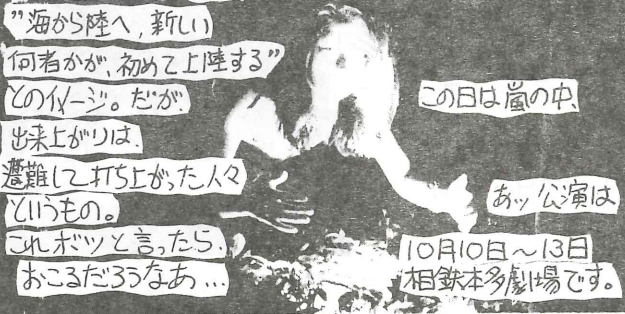 ”海から陸へ、新しい
何者かが、初めて上陸する”
とのイメージ。だが、
出来上がりは、
遭難して打ち上がった人々
というもの。
これボツと言ったら、
おこるだろうなあ…
この日は嵐の中、
あッ公演は
10月10日～13日
相鉄本多劇場です。